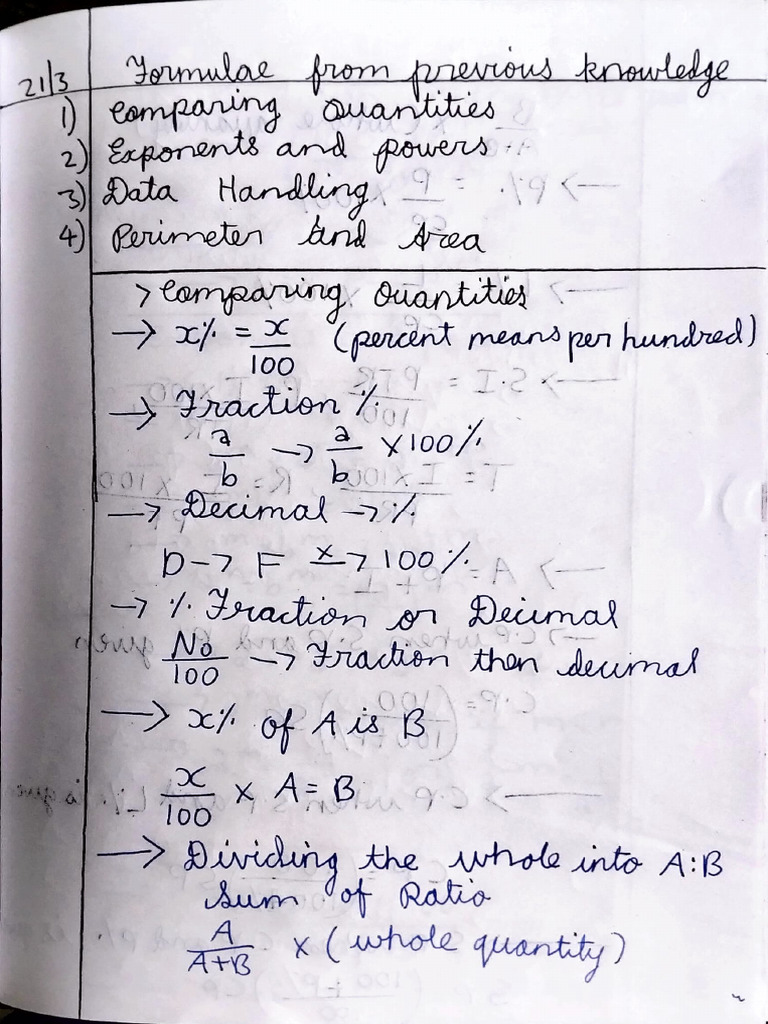 21/3 Formulae from previous knowledge
1) Comparing Quantities
2) Exponents and powers
3) Data Handling
4) Perimeter and Area
> Comparing Quantities
→ x% = x/100 (percent means per hundred)
→ Fraction %
a/b → a/b × 100%
→ Decimal → %
D → F ×→ 100%
→ % Fraction or Decimal
No/100 → Fraction then decimal
→ x% of A is B
x/100 × A = B
→ Dividing the whole into A:B
Sum of Ratio
A/A+B × (whole quantity)